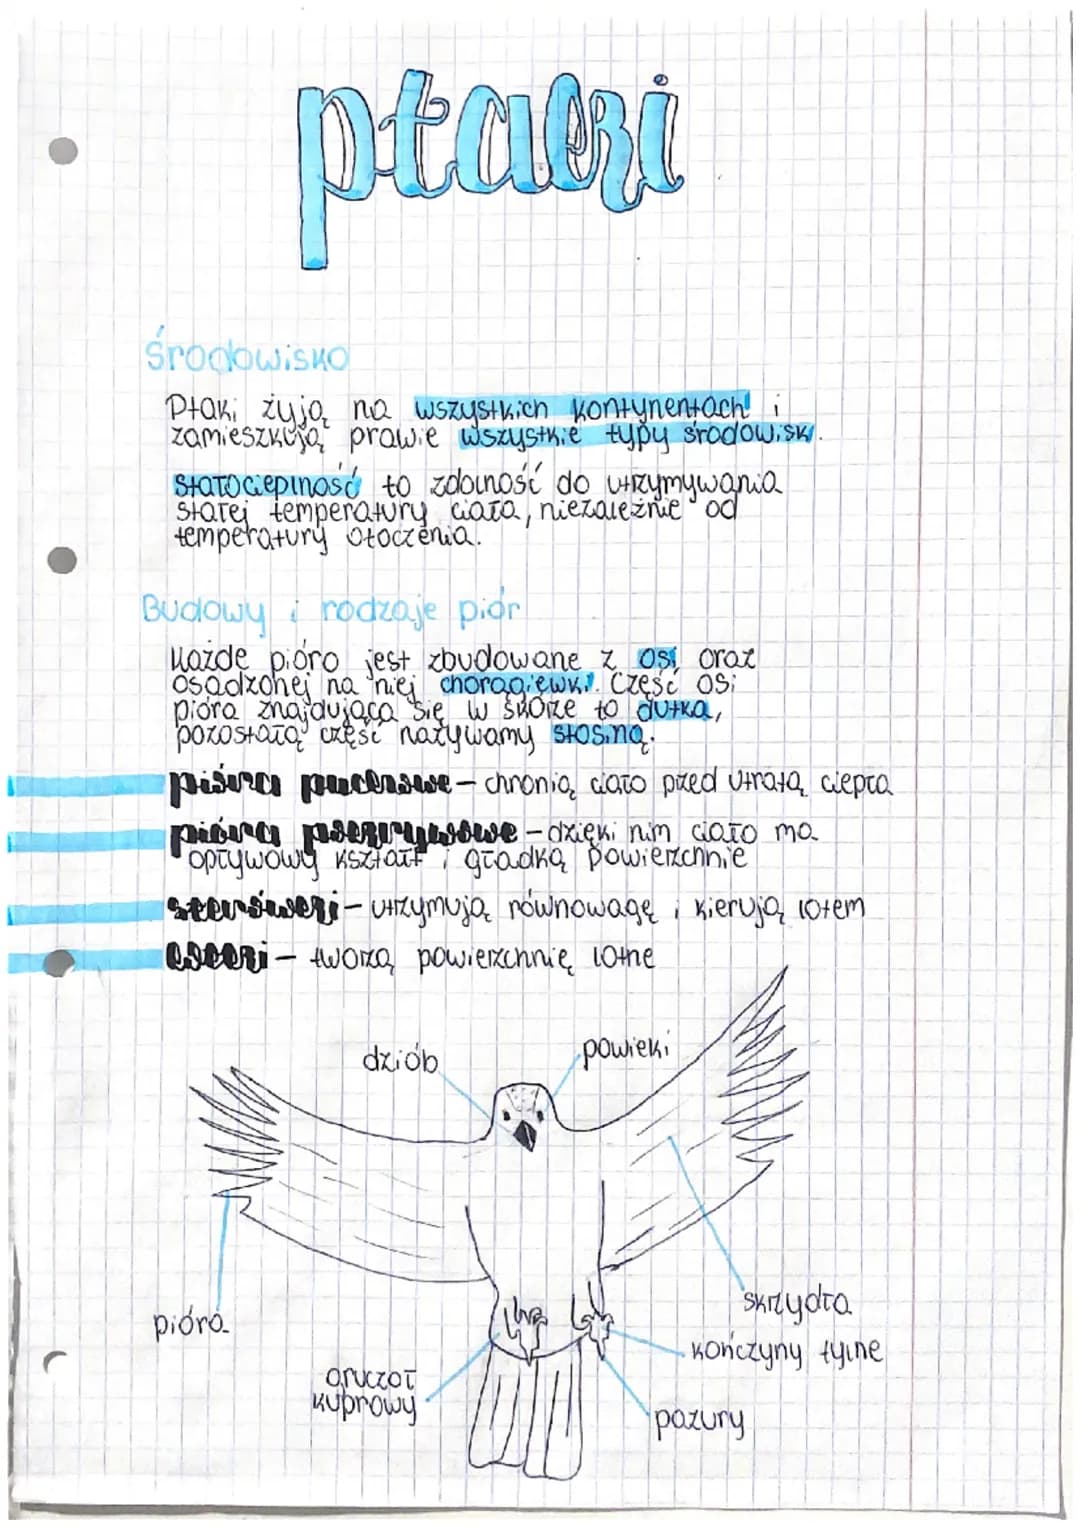 ptaki
Środowisko
Ptaki żyją na wszystkich kontynentach i
zamieszkują prawie wszystkie typy środowisk.
Stałocieplność to zdolność do utrzymywania
stałej temperatury ciała, niezależnie od
temperatury otoczenia.
Budowy i rodzaje piór
Każde pióro jest zbudowane z osi oraz
osadzonej na niej chorągiewki. Część osi
pióra znajdująca się w skórze to dutka,
pozostałą część nazywamy stosiną.
pióra puchowe - chronią ciało przed utratą ciepła
pióra pokrywowe - dzięki nim ciało ma
opływowy kształt i gładką powierzchnie
sterówki - utrzymują równowagę i kierują lotem
lotki - tworzą powierzchnię lotne
dziób
powieki
pióra
skrzydła
kończyny tylne
gruczoł
kuprowy
pazury